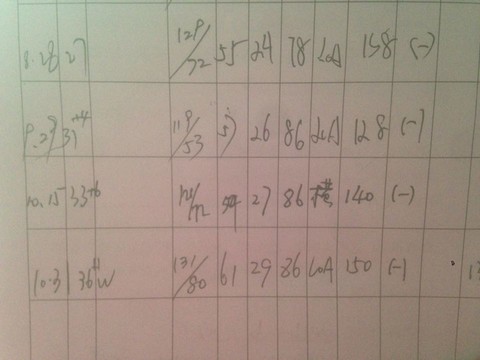 8.28 27 129/72 55 24 78 LOA 158 (-)
9.29 31+4 119/53 57 26 86 LOA 128 (-)
10.15 33+6 27 86 横 140 (-)
10.31 36+1w 131/80 61 29 86 LOA 150 (-)